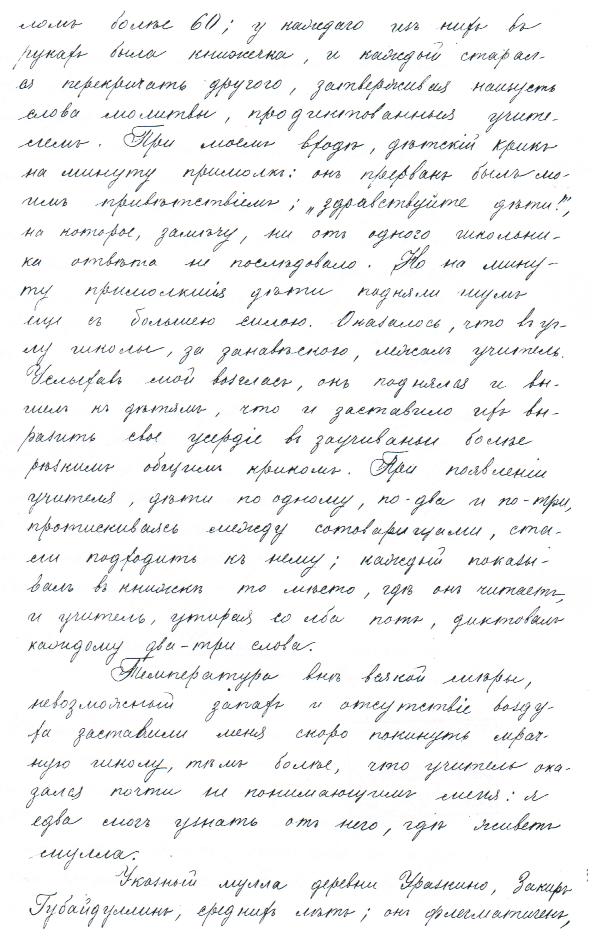 ломъ болѣе 60; у каждаго изъ нихъ въ
рукахъ была книжечка, и каждый старал-
ся перекричать другого, затверживая наизусть
слова молитвы, продиктованныя учите-
лемъ. При моемъ входѣ, дѣтскій крикъ
на минуту примолкъ: онъ прерванъ былъ мо-
имъ привѣтствіемъ; „здравствуйте дѣти!“,
на которое, замѣчу, ни отъ одного школьни-
ка отвѣта не послѣдовало. Но на мину-
ту примолкшія дѣти подняли шумъ
еще съ большею силою. Оказалось, что въ уг-
лу школы, за занавѣскою, лежалъ учитель.
Услыхавъ мой возгласъ, онъ поднялся и вы-
шелъ къ дѣтямъ, что и заставило ихъ вы-
разить свое усердіе въ заучиваньи болѣе
рѣзкимъ общимъ крикомъ. При появленіи
учителя, дѣти по одному, по-два и по-три,
протискиваясь между сотоварищами, ста-
ли подходить къ нему; каждый показы-
валъ въ книжкѣ то мѣсто, гдѣ онъ читаетъ,
и учитель, утирая со лба потъ, диктовалъ
каждому два-три слова.
Температура внѣ всякой мѣры,
невозможный запахъ и отсутствіе возду-
ха заставили меня скоро покинуть мрач-
ную школу, тѣмъ болѣе, что учитель ока-
зался почти не понимающимъ меня: я
едва могъ узнать отъ него, гдѣ живетъ
мулла.
Указный мулла деревни Уразкино, Закиръ
Губайдуллинъ, среднихъ лѣтъ; онъ флегматиченъ,